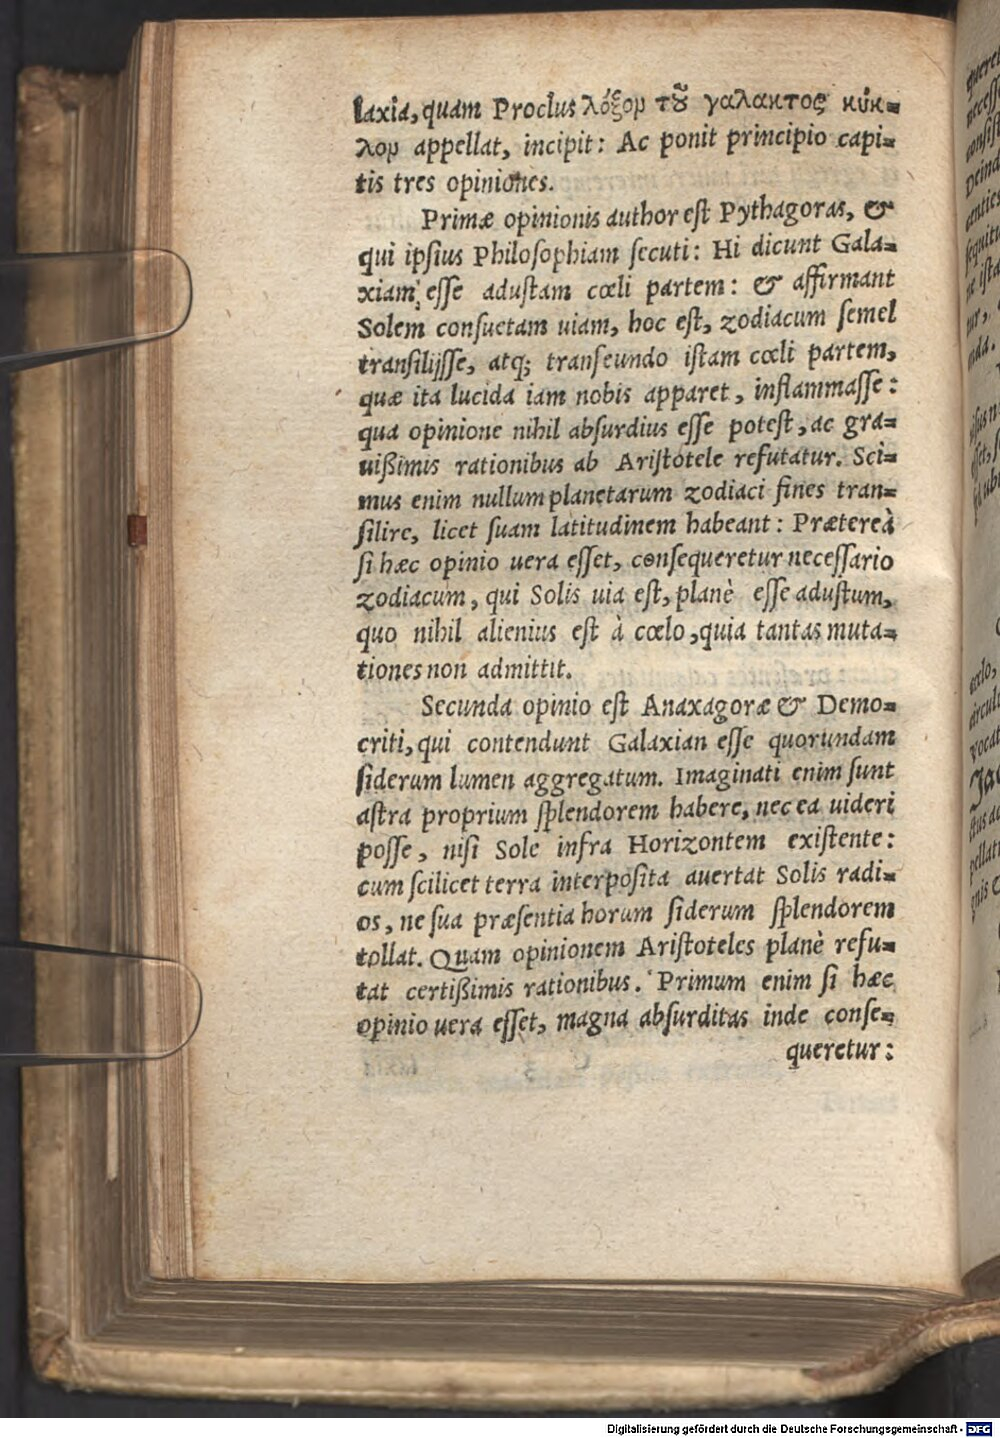 laxia, quam Proclus λόξον τοῦ γαλακτος κύκ=
λον appellat, incipit: Ac ponit principio capi=
tis tres opiniones.
Primæ opinionis author est Pythagoras, &
qui ipsius Philosophiam secuti: Hi dicunt Gala=
xiam, esse adustam cœli partem: & affirmant
Solem consuetam uiam, hoc est, zodiacum semel
transilijsse, atq; transeundo istam cœli partem,
quæ ita lucida iam nobis apparet, inflammasse:
qua opinione nihil absurdius esse potest, ac gra=
uißimis rationibus ab Aristotele refutatur. Sci=
mus enim nullum planetarum zodiaci fines tran=
silire, licet suam latitudinem habeant: Prætereà
si hæc opinio uera esset, consequeretur necessario
zodiacum, qui Solis uia est, planè esse adustum,
quo nihil alienius est à cœlo, quia tantas muta=
tiones non admittit.
Secunda opinio est Anaxagoræ & Demo=
criti, qui contendunt Galaxian esse quorundam
siderum lumen aggregatum. Imaginati enim sunt
astra proprium splendorem habere, nec ea uideri
posse, nisi Sole infra Horizontem existente:
cum scilicet terra interposita auertat Solis radi=
os, ne sua præsentia horum siderum splendorem
tollat. Quam opinionem Aristoteles planè refu=
tat certißimis rationibus. Primum enim si hæc
opinio uera esset, magna absurditas inde conse=
queretur:
Digitalisierung gefördert durch die Deutsche Forschungsgemeinschaft - DFG